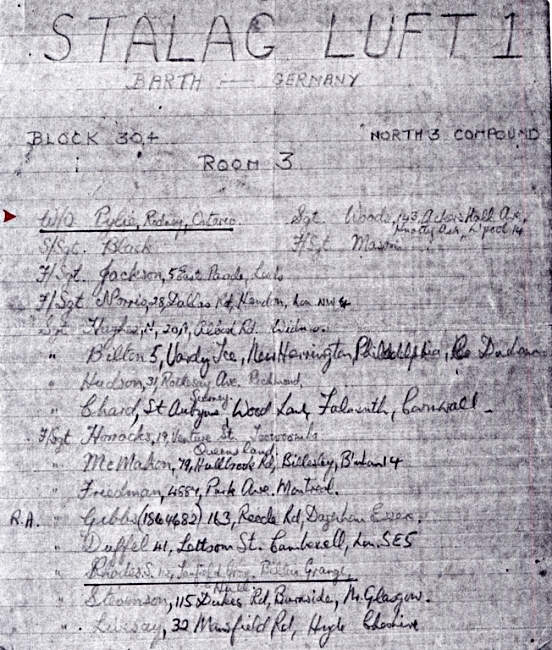 STALAG LUFT 1
BARTH — GERMANY
BLOCK 304
NORTH 3 COMPOUND
ROOM 3
W/O Pylie, Rodney, Ontario
Sgt. Woods, 143, Hall Ave,
Knotty Ash, L'pool 14
S/Sgt. Black
F/Sgt Mason
F/Sgt. Jackson, 5 East Parade, Leeds
F/Sgt Norris, 28, Dallas Rd, Hendon, Lon NW4
Sgt Hughes, Rd. Widnes.
" Bilton 5, Vardy Tce, New Herrington, Philadelphia, Co Durham
" Hudson, 31, Ave. Richmond,
Sydney.
" Chard, St Aubyns, Wood Lane, Falmouth, Cornwall.
F/Sgt Horrocks, 19, Venture St. Toowoomba
Queensland.
" McMahon, 79, Hallbrook Rd, Billesley, B'ham 14
" Freedman, 4584, Park Ave. Montreal.
R.A. " Gibbs (1864682) 163, Reede Rd, Dagenham Essex.
" Duffel 41, Lettsom St. Camberwell, Lon. SE5
" Rhodes S. Grange,
Hull
" Stevenson, 115 Dukes Rd, Burnside, Nr. Glasgow.
" Livesay, 32 Mansfield Rd, Hyde Cheshire